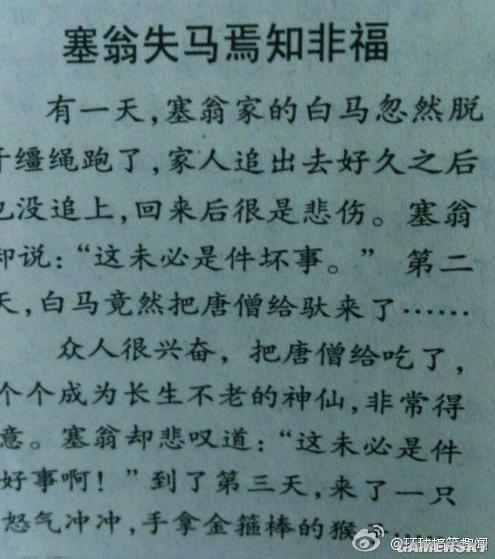 塞翁失马焉知非福
有一天，塞翁家的白马忽然脱
缰绳跑了，家人追出去好久之后
也没追上，回来后很是悲伤。塞翁
却说：“这未必是件坏事。” 第二
天，白马竟然把唐僧给驮来了……
众人很兴奋，把唐僧给吃了，
个个成为长生不老的神仙，非常得
意。塞翁却悲叹道：“这未必是件
好事啊！”到了第三天，来了一只
怒气冲冲，手拿金箍棒的猴
@环球搞笑趣闻
GAMERSKY